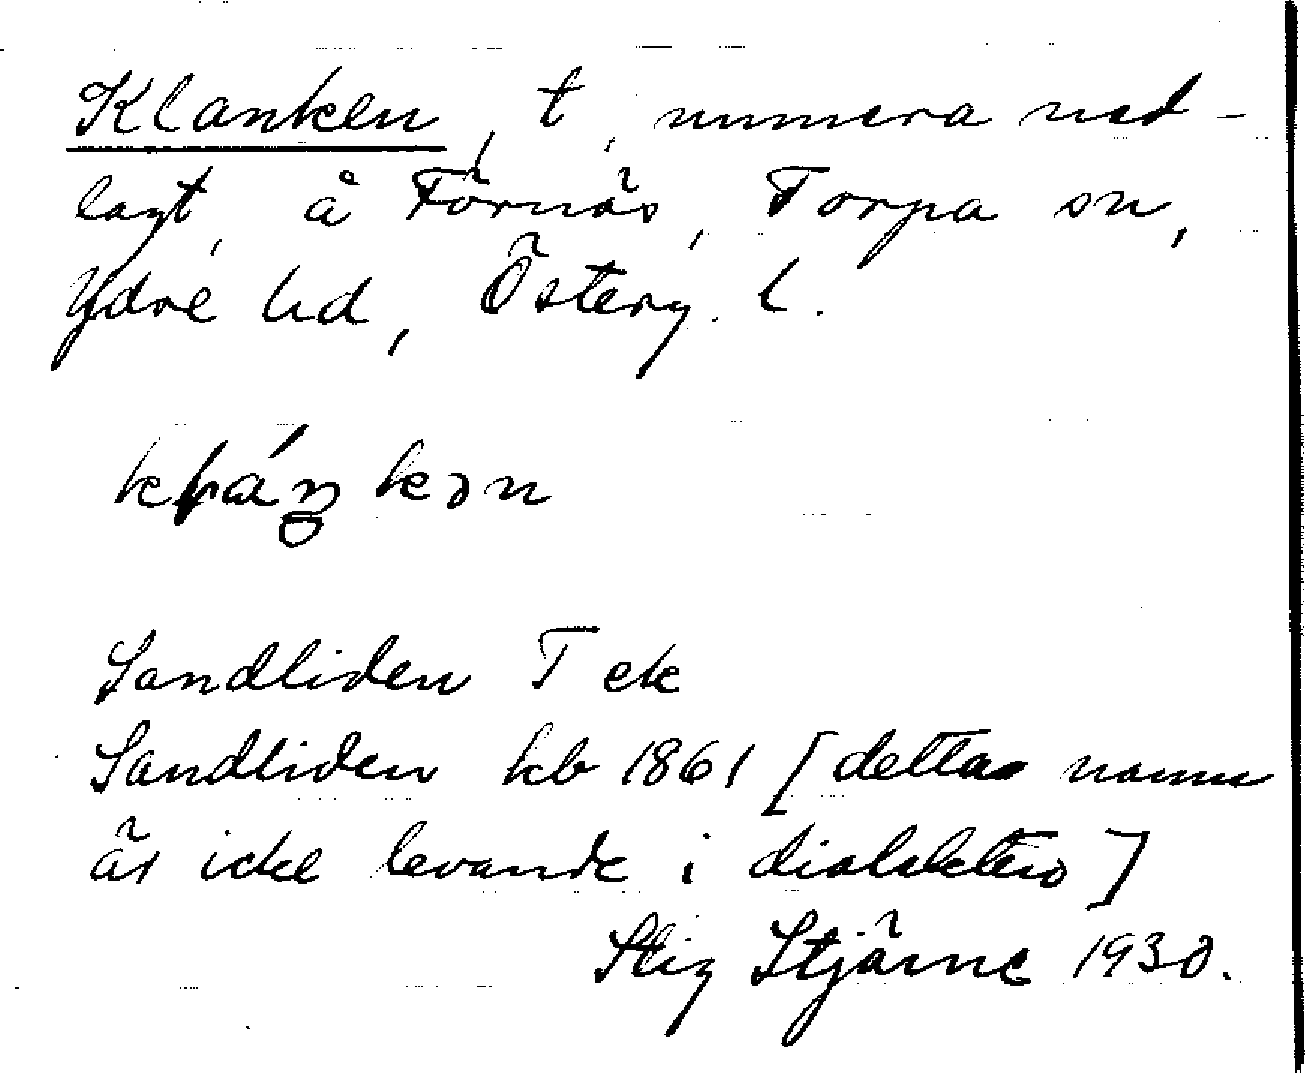 Klanken, t, numera ned-
lagt, å Förnäs, Torpa sn,
Ydre hd, Österg. l.
kláŋkən
Sandliden T ek
Sandliden kb 1861 [detta namn
är icke levande i dialekten]
Stig Stjärne 1930.